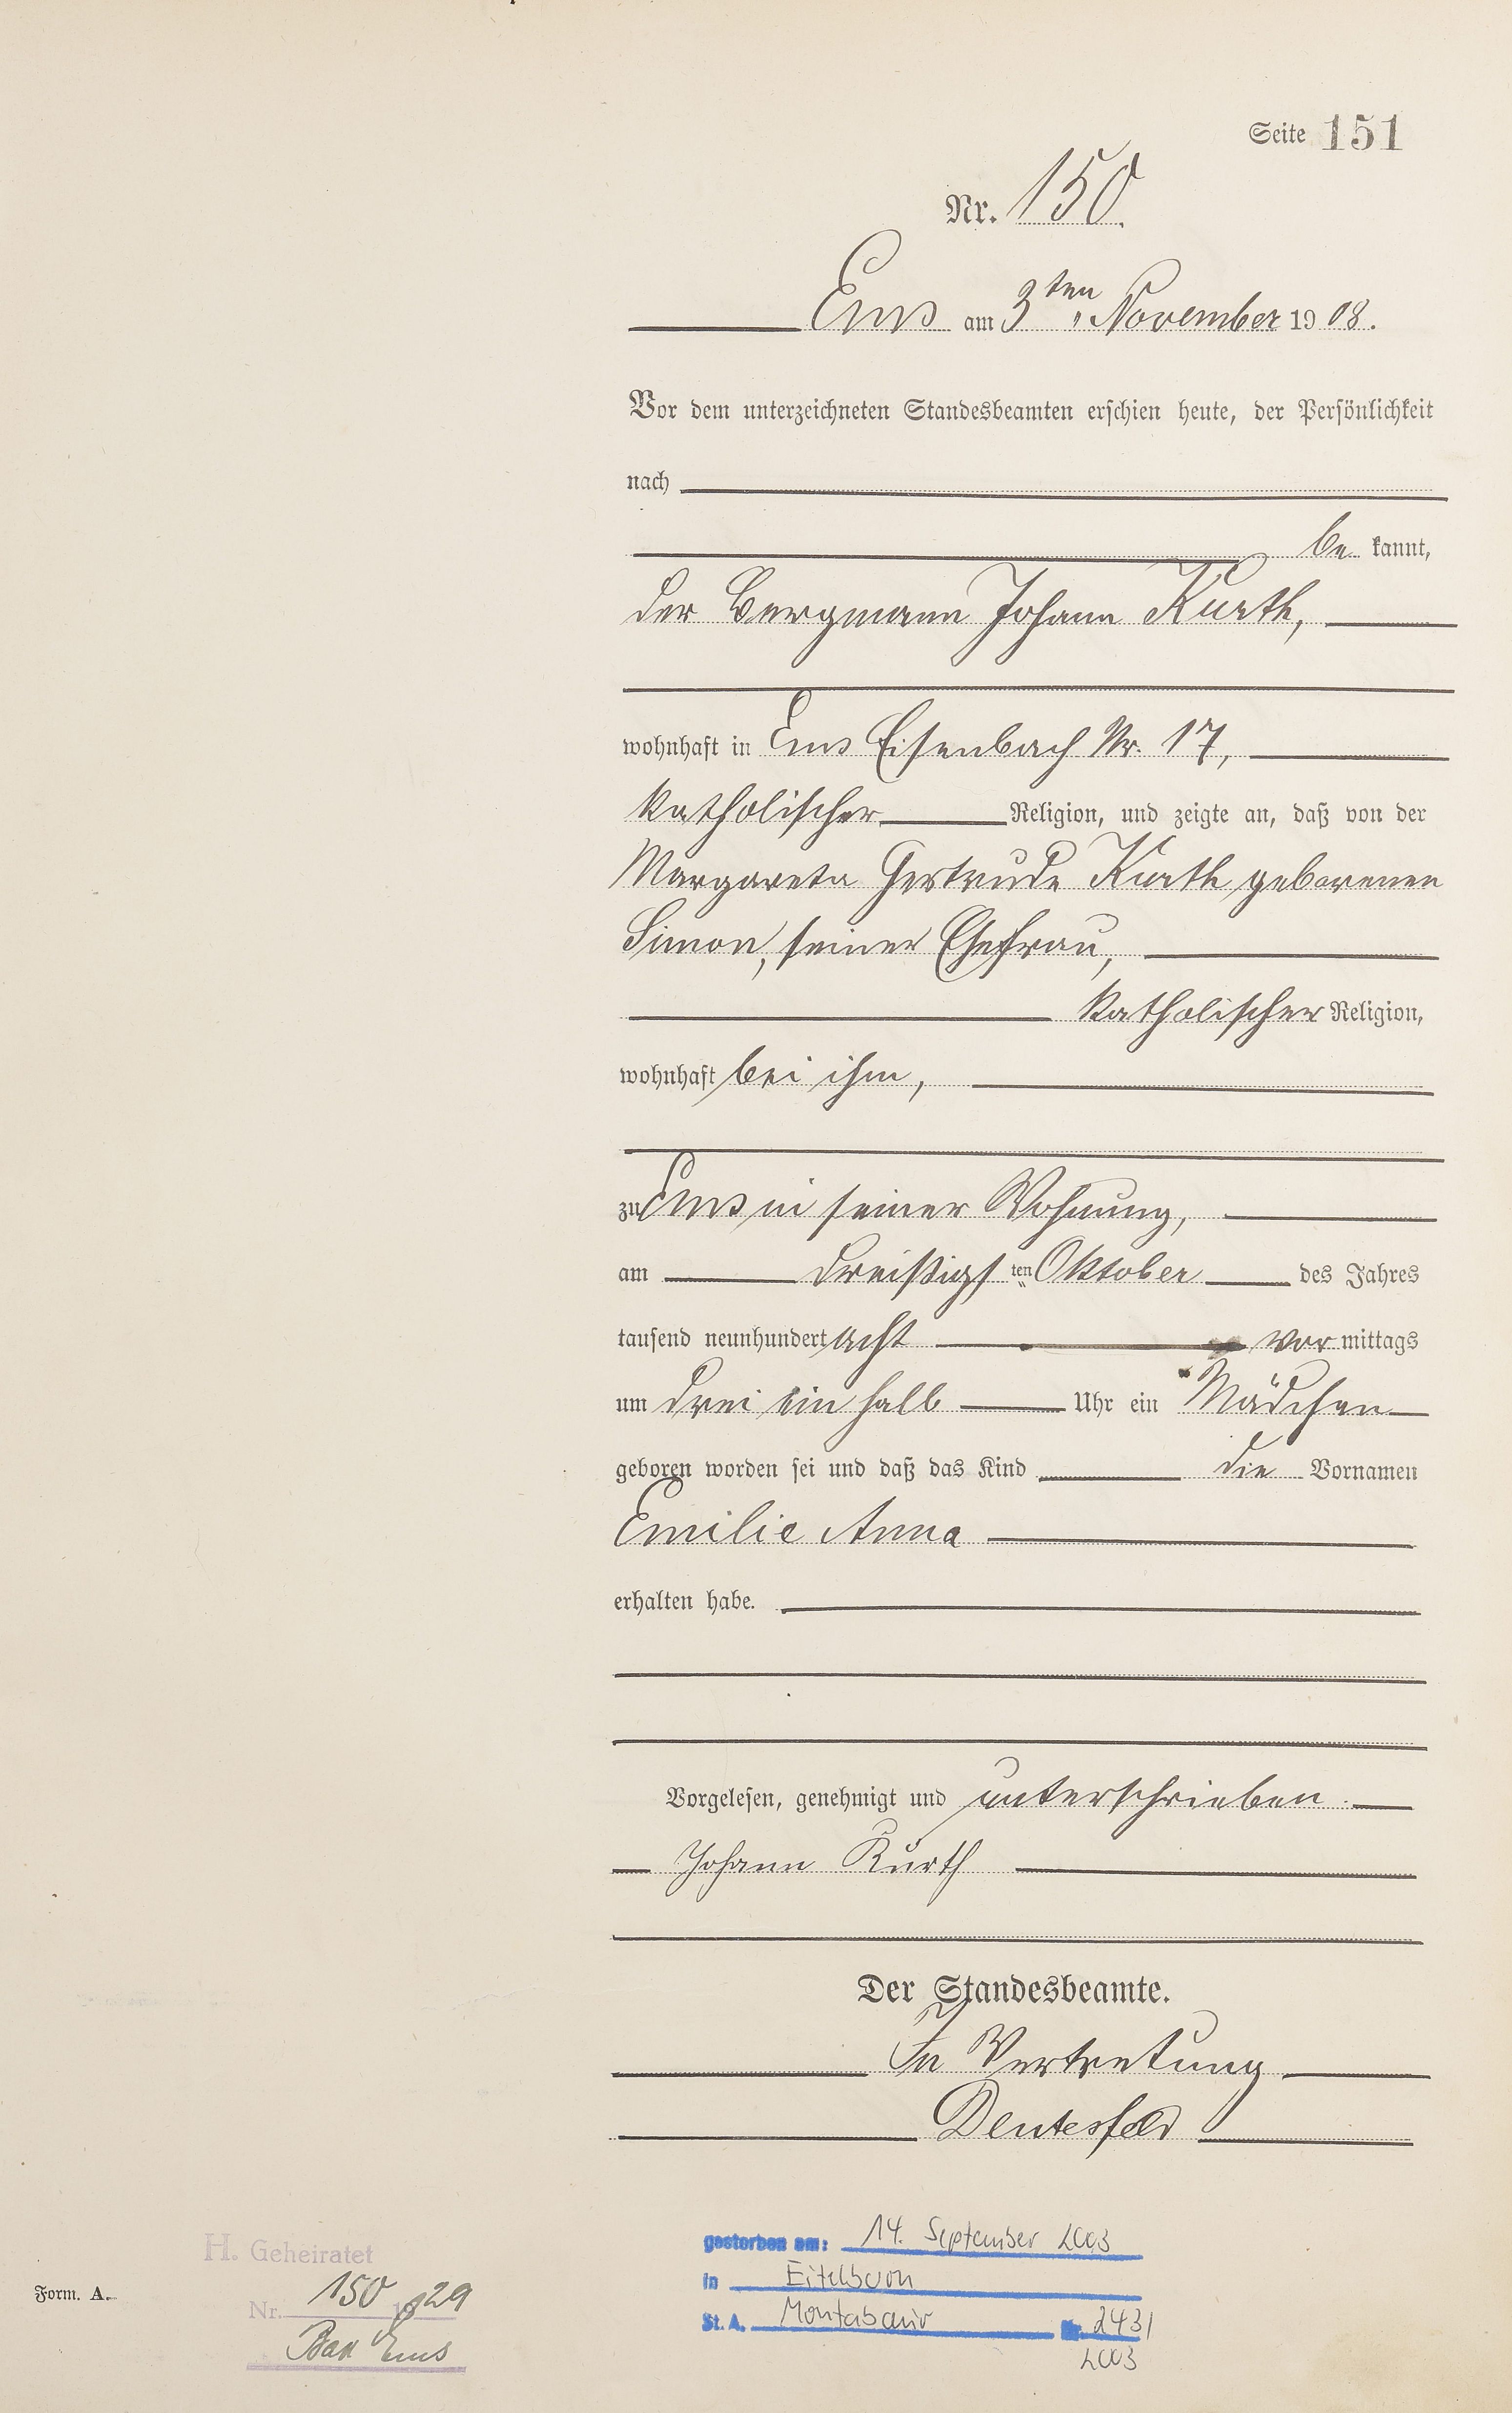 Seite 151
Nr. 150.
Ems am 3ten November 1908.
Vor dem unterzeichneten Standesbeamten erschien heute, der Persönlichkeit
nach
be kannt,
der Bergmann Johann Kurth,
wohnhaft in Ems Eisenbach Nr. 17,
katholischer Religion, und zeigte an, daß von der
Margareta Gertrude Kurth geborenen
Simon, seiner Ehefrau,
katholischer Religion,
wohnhaft bei ihm,
zu Ems in seiner Wohnung,
am dreißigsten Oktober des Jahres
tausend neunhundert acht vor mittags
um drei ein halb Uhr ein Mädchen
geboren worden sei und daß das Kind die Vornamen
Emilie Anna
erhalten habe.
Vorgelesen, genehmigt und unterschrieben.
Johann Kurth
Der Standesbeamte.
In Vertretung
Deutesfeld
H. Geheiratet
Nr. 150 1929
Bad Ems
Form. A.
gestorben am: 14. September 2003
in Eitelborn
St. A. Montabaur Nr. 243/
2003